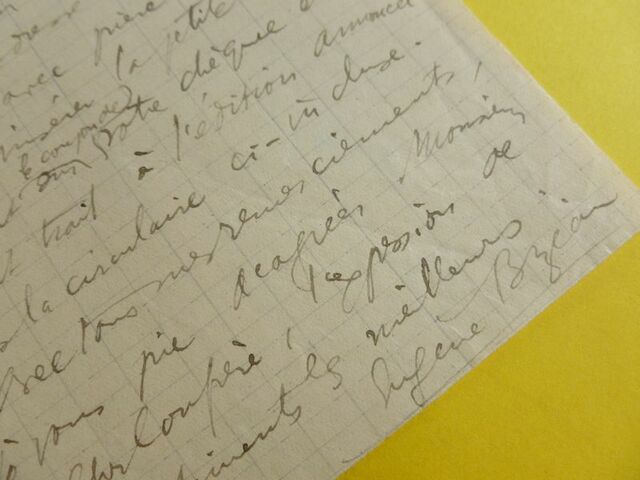 avec prière
insérer la petite
le coupon de
sur votre chèque
trait à l'édition annoncée
la circulaire ci-incluse.
avec tous mes remerciements,
je vous prie d'agréer Monsieur
et cher Confrère, l'expression de
sentiments les meilleurs.
Eugène Bizeau